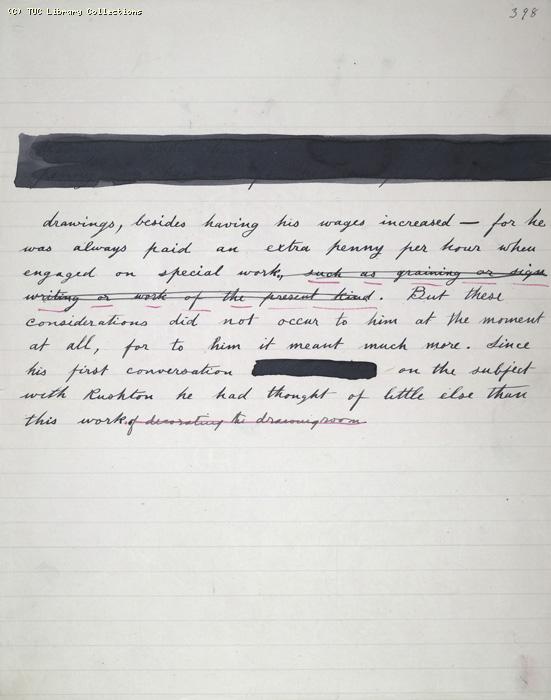 (C) TUC Library Collections
398
drawings, besides having his wages increased — for he
was always paid an extra penny per hour when
engaged on special work, such as graining or sign
writing or work of the present kind. But these
considerations did not occur to him at the moment
at all, for to him it meant much more. Since
his first conversation on the subject
with Rushton he had thought of little else than
this work of decorating the drawingroom